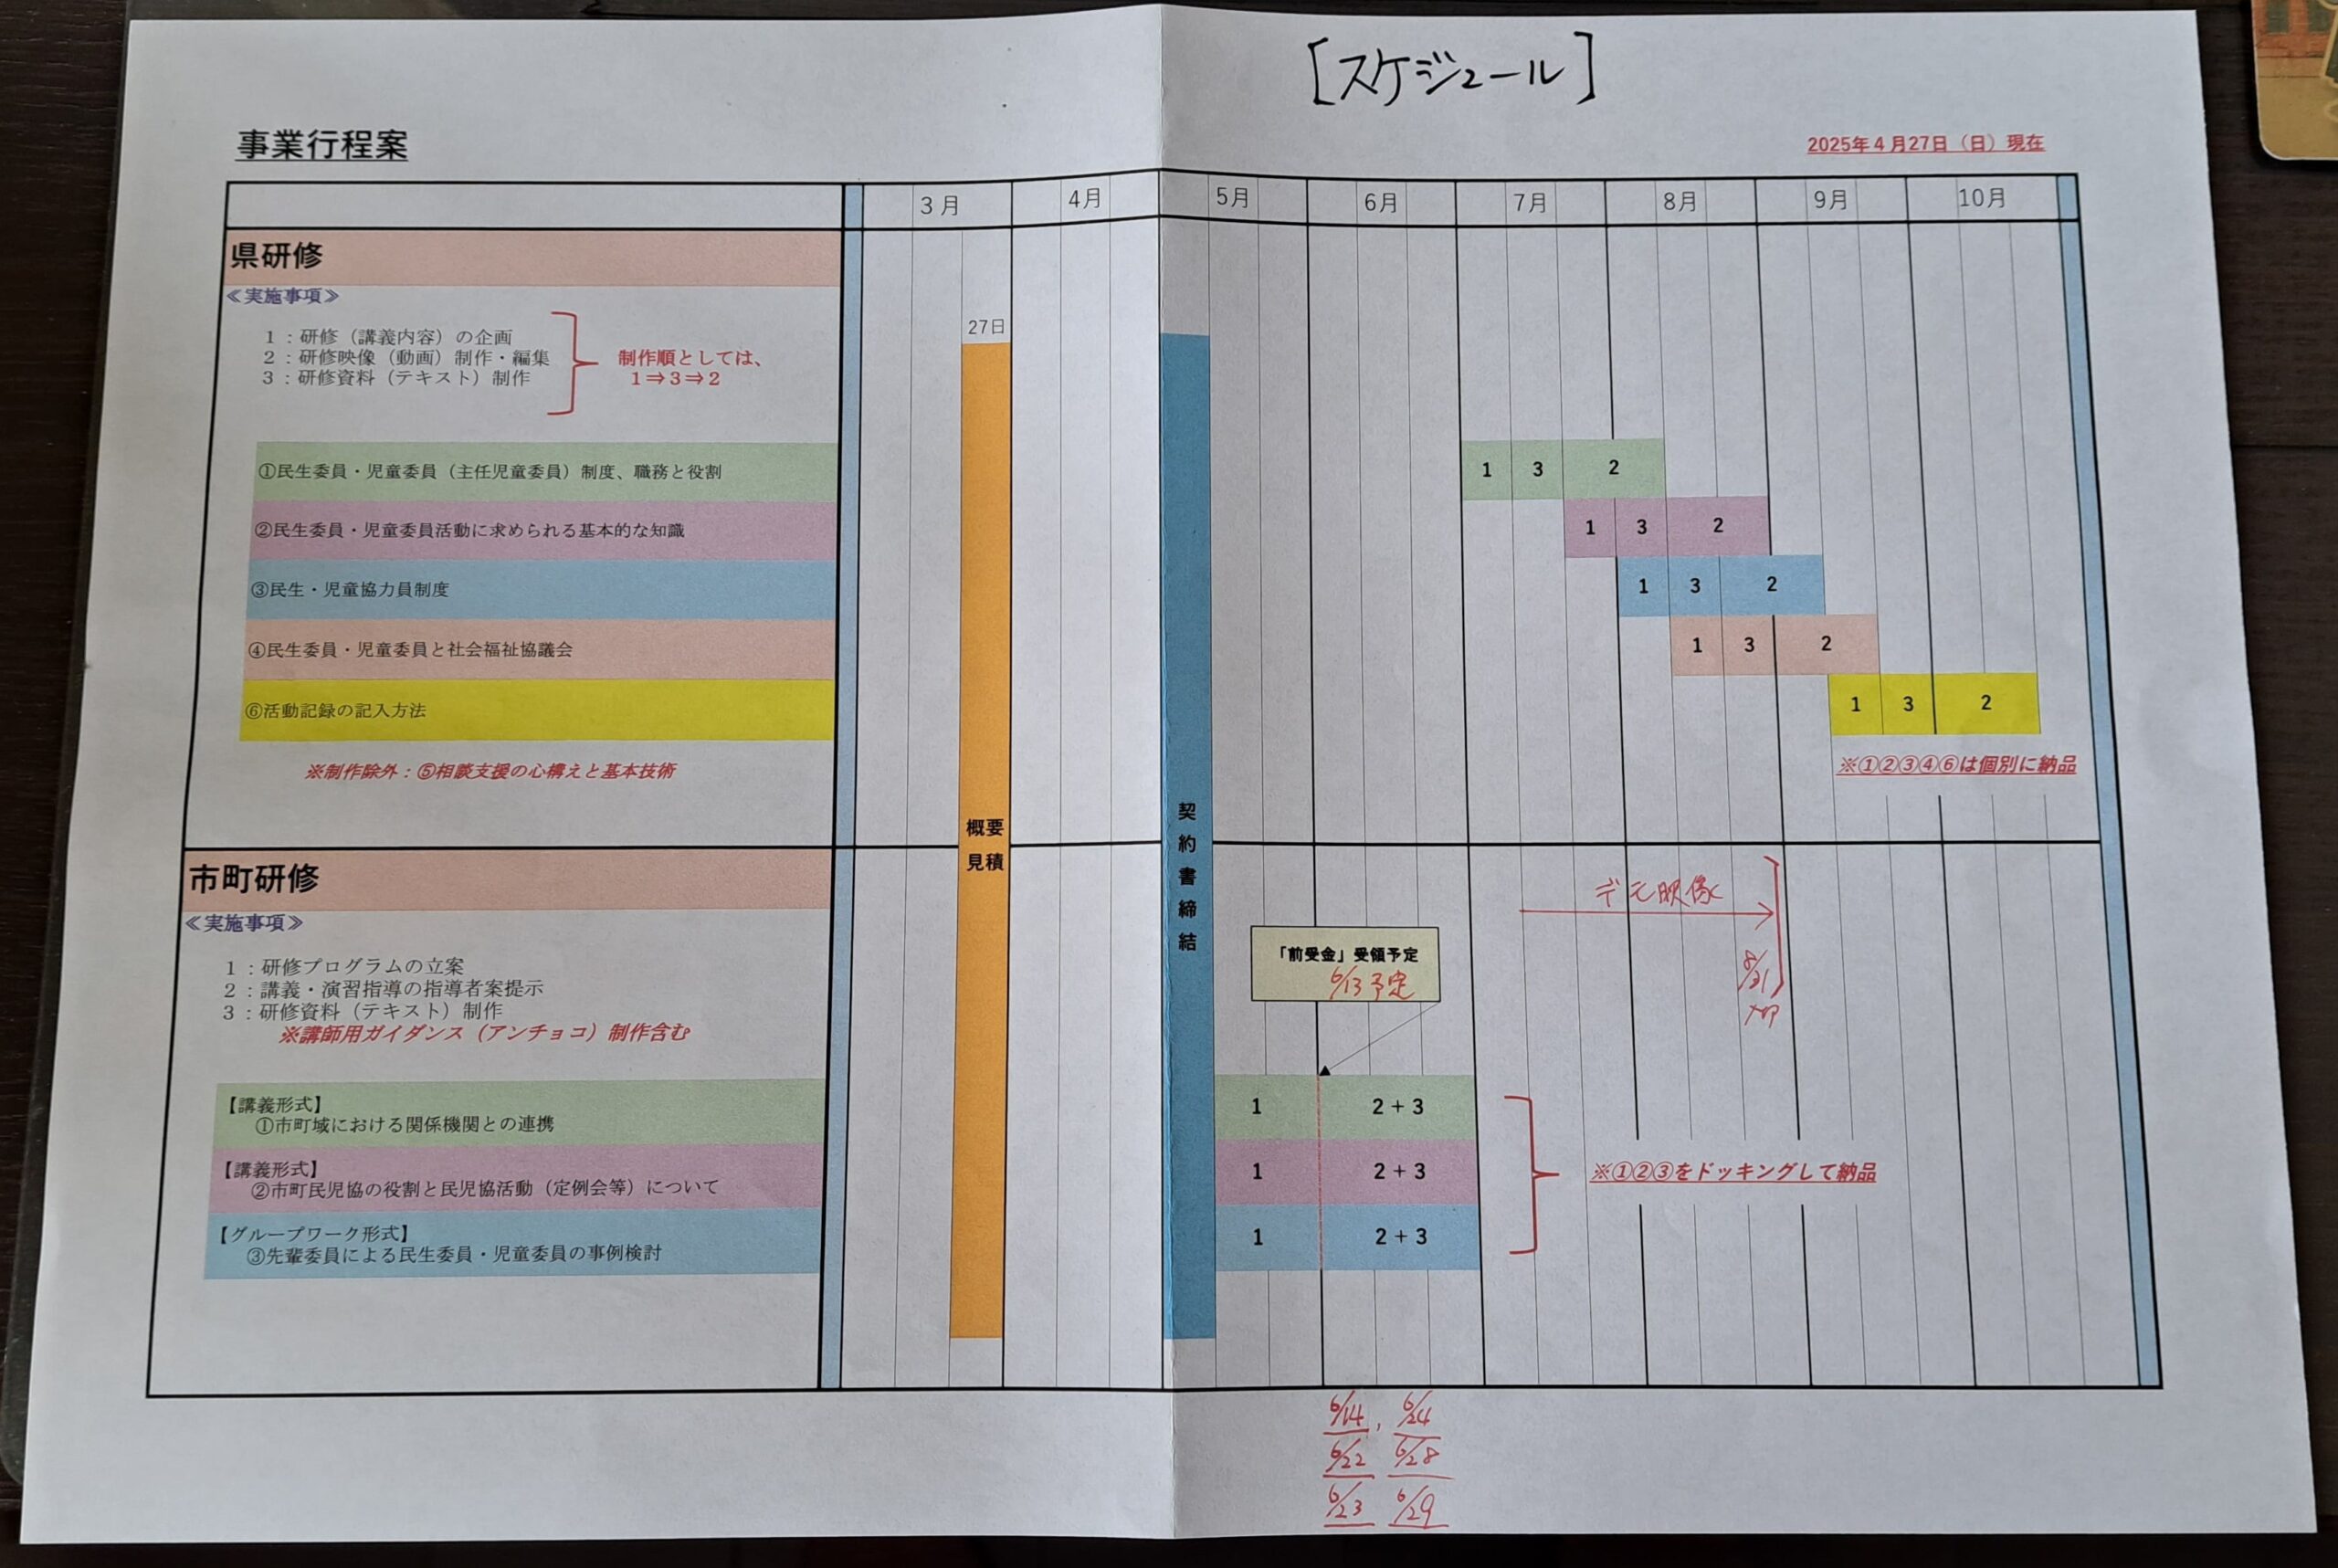 [スケジュール]
事業行程案
2025年4月27日（日）現在
3月 4月 5月 6月 7月 8月 9月 10月
県研修
≪実施事項≫
27日
1：研修（講義内容）の企画
2：研修映像（動画）制作・編集
3：研修資料（テキスト）制作
制作順としては、
1⇒3⇒2
①民生委員・児童委員（主任児童委員）制度、職務と役割
1 3 2
②民生委員・児童委員活動に求められる基本的な知識
1 3 2
③民生・児童協力員制度
1 3 2
④民生委員・児童委員と社会福祉協議会
1 3 2
⑥活動記録の記入方法
1 3 2
※制作除外：⑤相談支援の心構えと基本技術
※①②③④⑥は個別に納品
概要
見積
契約書締結
市町研修
≪実施事項≫
1：研修プログラムの立案
2：講義・演習指導の指導者案提示
3：研修資料（テキスト）制作
※講師用ガイダンス（アンチョコ）制作含む
デモ映像
8/31
「前受金」受領予定
6/13予定
【講義形式】
①市町域における関係機関との連携
1 2+3
【講義形式】
②市町民児協の役割と民児協活動（定例会等）について
1 2+3
【グループワーク形式】
③先輩委員による民生委員・児童委員の事例検討
1 2+3
※①②③をドッキングして納品
6/14, 6/24
6/22 6/28
6/23 6/29